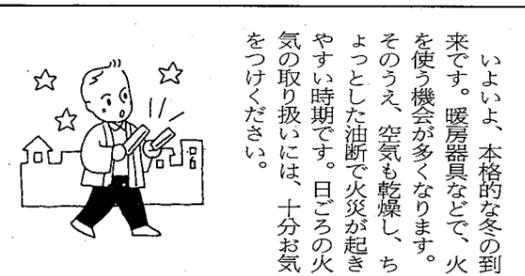 いよいよ、本格的な冬の到
来です。暖房器具などで、火
を使う機会が多くなります。
そのうえ、空気も乾燥し、ち
ょっとした油断で火災が起き
やすい時期です。日ごろの火
気の取り扱いには、十分お気
をつけください。